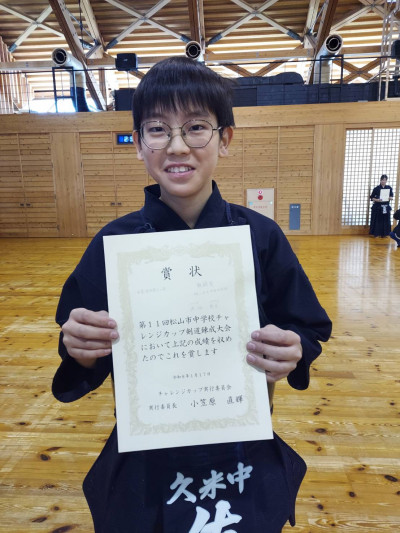 賞状
第１１回松山市中学校チャ
レンジカップ剣道錬成大会
において上記の成績を収め
たのでこれを賞します
チャレンジカップ実行委員会
実行委員長 小笠原 直輝
久米中
佐